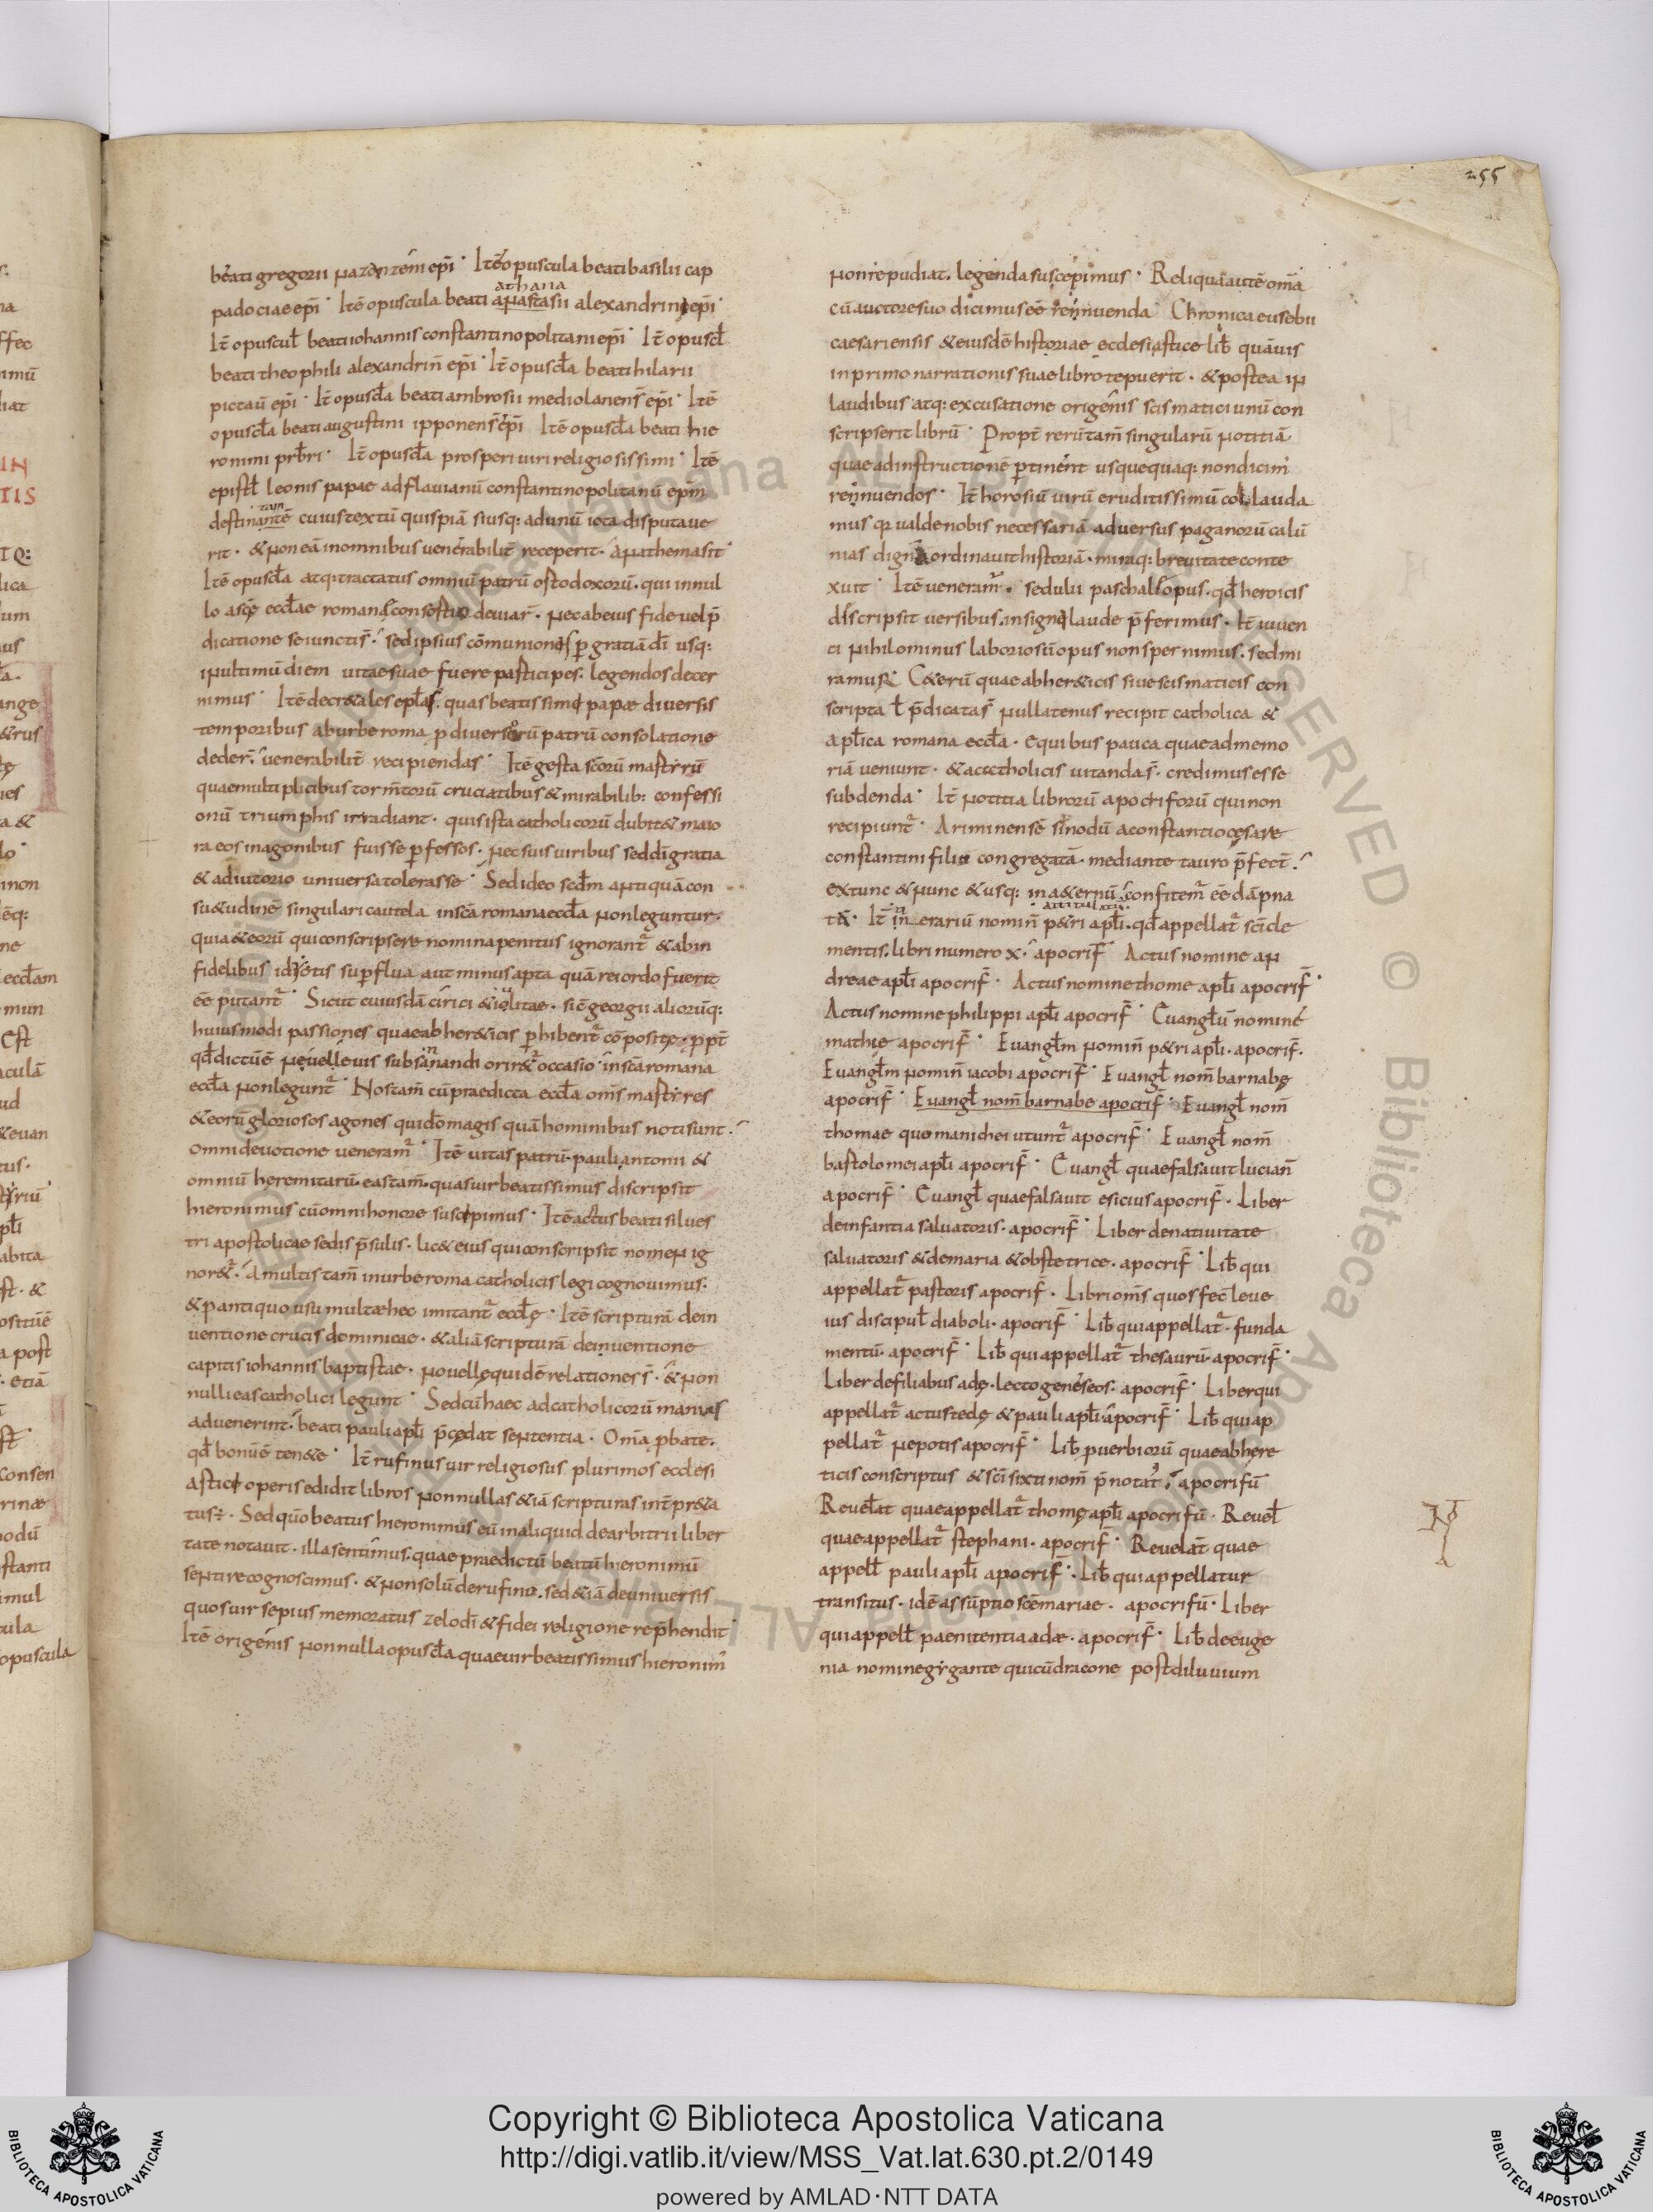 255
beati gregorii nazanzeni epī · Itē opuscula beati basilii cap
athana
padociae epī · Itē opuscula beati anastasii alexandrini epī ·
It̄ opuscul̄ beati iohannis constantinopolitani epī · It̄ opuscl̄
beati theophili alexandrin̄ epī · It̄ opuscl̄a beati hilarii
pictaū epī · It̄ opuscl̄a beati ambrosii mediolanens̄ epī · Itē
opuscl̄a beati augustini ipponens̄ epī Itē opuscl̄a beati hie
ronimi prb̄ri · It̄ opuscl̄a prosperi viri religiosissimi · Itē
epistl̄ leonis papae ad flavianū constantinopolitanū epm̄
tam
destinantē cuius textū quispiā siusq: ad unū iota disputave
rit · & non eā in omnibus venerabilit̄ receperit · anathema sit ·
Itē opuscl̄a atq: tractatus omniū patrū ortodoxorū · qui in nul
lo a scę eccl̄ae romanę consortio deviar̄ · nec ab eius fide vel p̄
dicatione seiunctis̄ · sed ipsius cōmunionis p gratiā dī usq:
in ultimū diem vitae suae fuere participes · legendos decer
nimus · Itē decr&ales epl̄as · quas beatissimi papae diversis
temporibus ab urbe roma p diversorū patrū consolatione
deder̄ · venerabilit̄ recipiendas · Itē gesta scōrū martirū
quae multiplicibus torm̄torū cruciatibus & mirabilib: confessi
onū triumphis irradiant · quis ista catholicorū dubit& maio
ra eos in agonibus fuisse pfessos · nec suis viribus sed dī gratia
& adiutorio universa tolerasse · Sed ideo scd̄m antiquā con
su&udinē singulari cautela in scā romana eccl̄a non leguntur ·
quia & eorū qui conscripsere nomina penitus ignorant̄ & ab in
fidelibus idiotis supflua aut minus apta quā rei ordo fuerit
eē putant̄ · Sicut cuiusdā cirici & iulitae · sic̄ georgii aliorūq:
huiusmodi passiones quae ab her&icis phibent̄ cōpositę · ppt̄
qd̄ dictū ē ne vel levis subsannandi orir& occasio · in scā romana
eccl̄a non legunt̄ · Nos tam̄ cū praedicta eccl̄a om̄s martires
& eorū gloriosos agones qui dō magis quā hominibus noti sunt ·
omni devotione veneram̄ · Itē vitas patrū · pauli antonii &
omniū heremitarū · eas tam̄ · quas vir beatissimus discripsit
hieronimus cū omni honore suscipimus · Itē actus beati silves
tri apostolicae sedis p̄sulis · lic& eius qui conscripsit nomen ig
nor& · a multis tam̄ in urbe roma catholicis legi cognovimus ·
& p antiquo usu multæ hec imitant̄ eccl̄ę · Itē scripturā de in
ventione crucis dominicae · & aliā scripturā de inventione
capitis iohannis baptistae · novellę quidē relationes s̄ · & non
nulli eas catholici legunt · Sed cū haec ad catholicorū manus
advenerint · beati pauli apl̄i p̄cędat sententia · Om̄a pbate ·
qd̄ bonū ē ten&e · It̄ rufinus vir religiosus plurimos ecclesi
astici operis edidit libros nonnullas &iā scripturas int̄pr&a
tus ē · Sed qūo beatus hieronimus eū in aliquid de arbitrii liber
tate notavit · illa sentimus · quae praedictū beatū hieronimū
sentire cognoscimus · & non solū de rufino · sed &iā de universis
quos vir sepius memoratus zelo dī & fidei religione rep̄hendit ·
Itē origenis nonnulla opuscl̄a quae vir beatissimus hieronim̄
non repudiat · legenda suscepimus · Reliqua autē om̄a
cū auctore suo dicimus eē rennuenda Chronica eusebii
caesariensis & eiusdē historiae ecclesiastice lib̄ quāvis
in primo narrationis suae libro tepuerit · & postea in
laudibus atq: excusatione origenis scismatici unū con
scripserit librū · Propt̄ rerū tam̄ singularū notitiā
quae ad instructionē ptinent usquequaq: non dicim̄
rennuendos · It̄ horosiū virū eruditissimū collauda
mus qr valde nobis necessariā adversus paganorū calū
nias digna ordinavit historiā · miraq: brevitate conte
xuit · Itē veneram̄ · sedulii paschal opus · qd̄ heroicis
discripsit versibus · insigni laude p̄ferimus · It̄ iuven
ci nihilominus laboriosū opus non spernimus · sed mi
ramur C&erū quae ab her&icis sive scismaticis con
scripta l̄ p̄dicata s̄ nullatenus recipit catholica &
apl̄ica romana eccl̄a · e quibus pauca quae ad memo
riā veniunt · & a cctholicis vitanda s̄ · credimus esse
subdenda · It̄ notitia librorū apocriforū qui non
recipiunt̄ · Ariminensē sinodū a constantio cęsare
constantini filio congregatā · mediante tauro p̄fect̄ ·
ex tunc & nunc & usq: in a&ernū confitem̄ eē dāpna
tā · It̄ itinerariū nomin̄ p&ri apl̄i · qd̄ appellat̄ sc̄i cle
mentis · libri numero x · apocrif̄ Actus nomine an
dreae apl̄i apocrif̄ · Actus nomine thome apl̄i apocrif̄ ·
Actus nomine philippi apl̄i apocrif̄ · Euangl̄ū nomine
mathię apocrif̄ · Euangl̄m nomin̄ p&ri apl̄i · apocrif̄ ·
Euangl̄m nomin̄ iacobi apocrif̄ · Euangl̄ nom̄ barnabę
apocrif̄ · Euangl̄ nom̄ barnabe apocrif̄ · Euangl̄ nom̄
thomae quo manichei utunt̄ apocrif̄ · Euangl̄ nom̄
bartolomei apl̄i apocrif̄ · Euangl̄ quae falsavit lucian̄
apocrif̄ · Euangl̄ quae falsavit esicius apocrif̄ · Liber
de infantia salvatoris · apocrif̄ · Liber de nativitate
salvatoris & de maria & obstetrice · apocrif̄ · Lib̄ qui
appellat̄ pastoris apocrif̄ · Libri om̄s quos fec̄ leve
ius discipul̄ diaboli · apocrif̄ · Lib̄ qui appellat̄ · funda
mentū · apocrif̄ · Lib̄ qui appellat̄ thesaurū · apocrif̄ ·
Liber de filiabus adę · leptogeneseos · apocrif̄ · Liber qui
appellat̄ actus teclę & pauli apl̄i · apocrif̄ · Lib̄ qui ap
pellat̄ nepotis apocrif̄ · Lib̄ pverbiorū quae ab here
ticis conscriptus & sc̄i sixti nom̄ p̄notat̄ · apocrifū
Revel̄at quae appellat̄ thomę apl̄i apocrifū · Revel̄
quae appellat̄ stephani · apocrif̄ · Revelat̄ quae
appell̄ pauli apl̄i apocrif̄ · Lib̄ qui appellatur
transitus · idē assūptio scē mariae · apocrifū · Liber
qui appell̄ paenitentia adæ · apocrif̄ · Lib̄ de euge
nia nomine gygante qui cū dracone post diluvium
Copyright © Biblioteca Apostolica Vaticana
http://digi.vatlib.it/view/MSS_Vat.lat.630.pt.2/0149
powered by AMLAD·NTT DATA